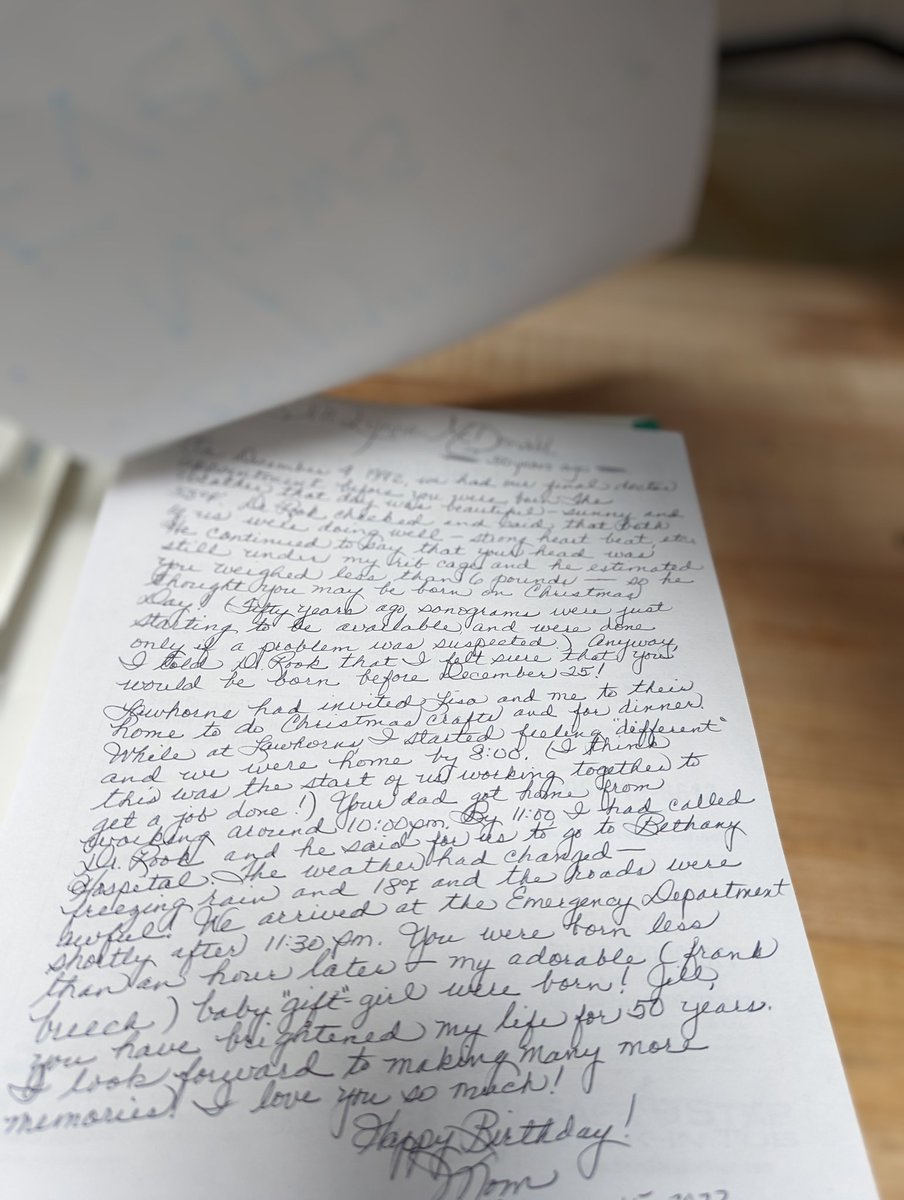 McDonald
50 years ago
On December 4, 1972, we had our final doctor
appointment before you were born. The
weather that day was beautiful - sunny and
55°F. Dr. Rook checked and said, that both
of us were doing well - strong heart beat, etc.
He continued to say that your head was
still under my rib cage and he estimated
you weighed less than 6 pounds - so he
thought you may be born on Christmas
Day! (Fifty years ago, sonograms were just
starting to be available and were done
only if a problem was suspected.) Anyway,
I told Dr. Rook that I felt sure that you
would be born before December 25!
Lawhorns had invited Lisa and me to their
home to do Christmas crafts and for dinner.
While at Lawhorns, I started feeling "different"
and we were home by 8:00. (I think
this was the start of us working together to
get a job done!) Your dad got home from
working around 10:00 pm. By 11:00 I had called
Dr. Rook and he said for us to go to Bethany
Hospital. The weather had changed -
freezing rain and 18°F and the roads were
awful! We arrived at the Emergency Department
shortly after 11:30 pm. You were born less
than an hour later - my adorable (frank
breech) baby "gift" girl were born! Jill,
you have brightened my life for 50 years.
I look forward to making many more
memories! I love you so much!
Happy Birthday!
Mom